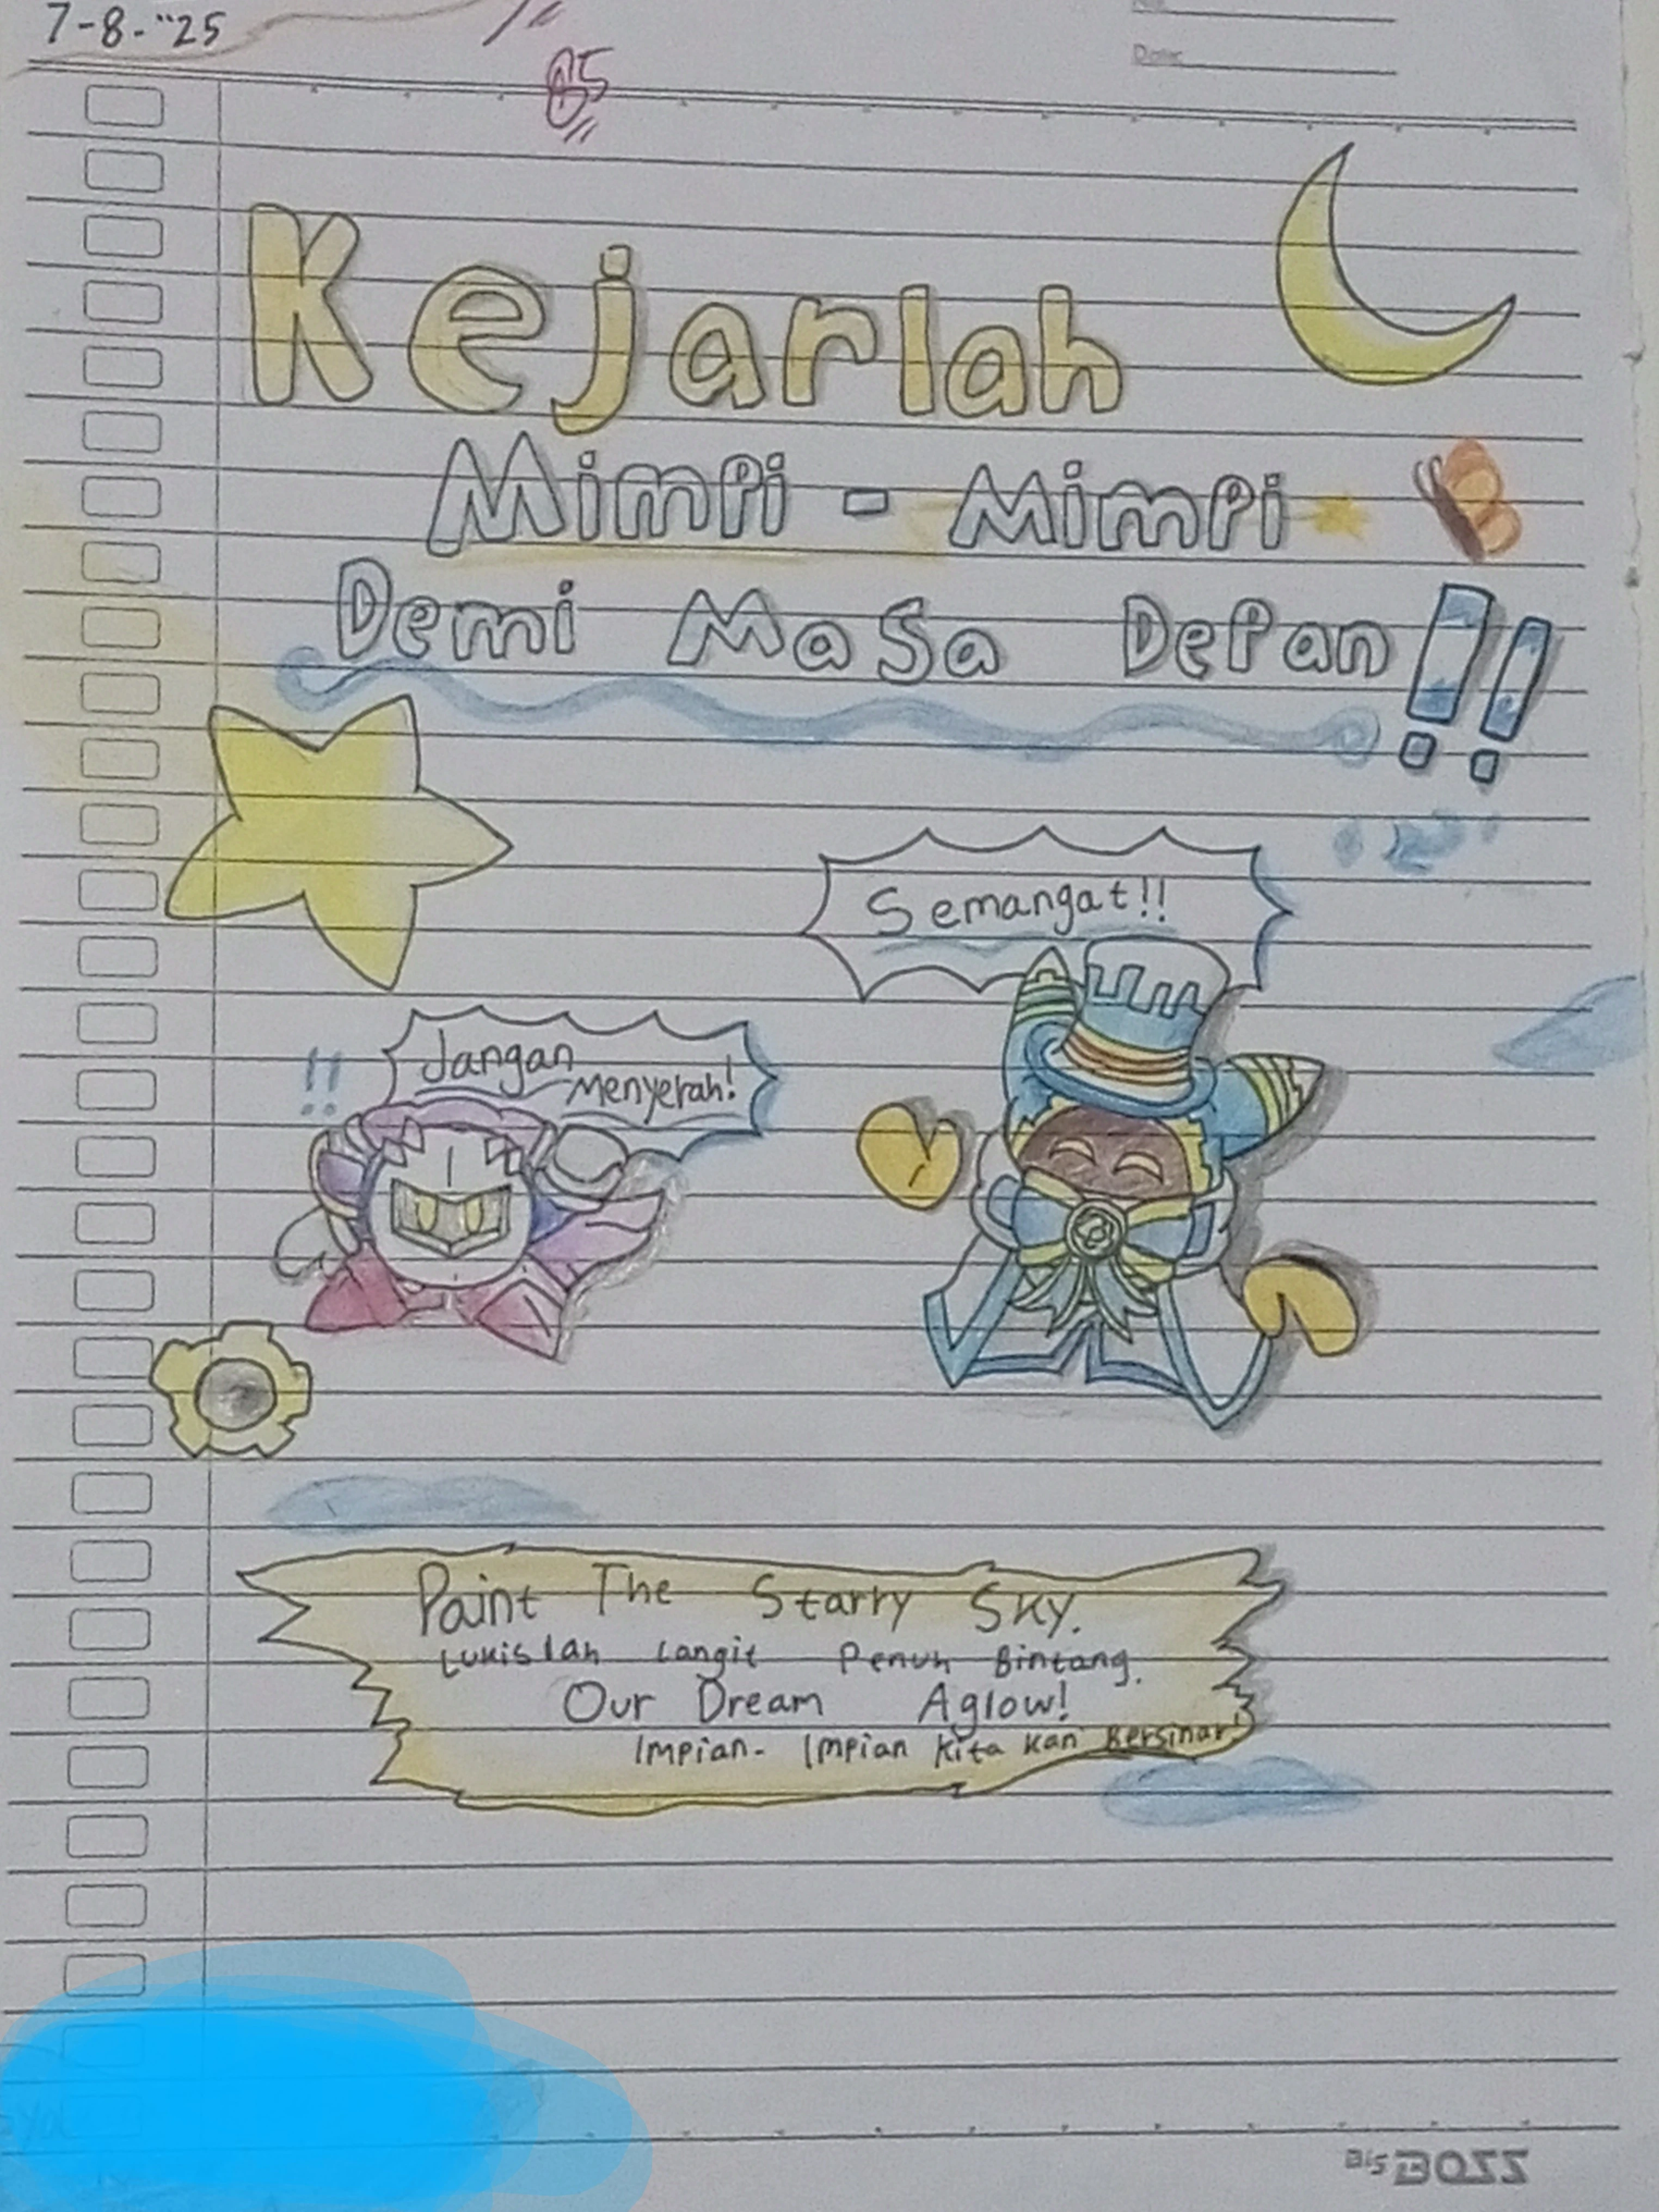 7-8-"25
85
Date
Kejarlah
Mimpi - Mimpi
Demi Masa Depan!!
Semangat!!
!!
Jangan
Menyerah!
Paint The Starry Sky.
Lukislah Langit Penuh Bintang.
Our Dream Aglow!
Impian- Impian Kita Kan Bersinar!
BIG BOSS